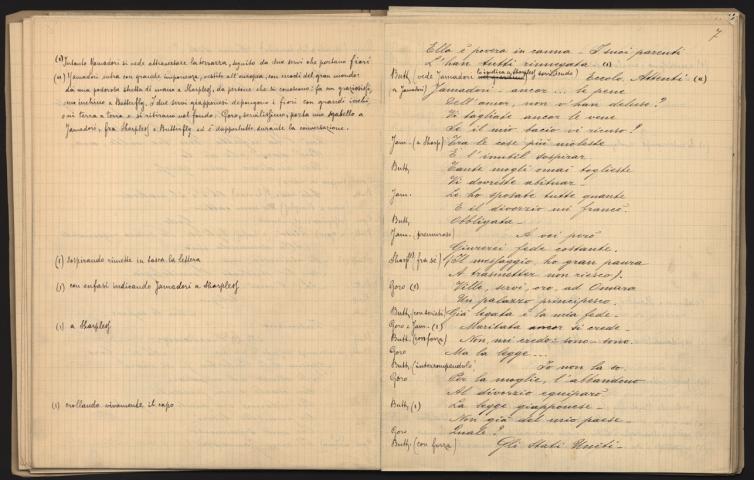 (1) Intanto Yamadori si vede attraversare la terrazza, seguito da due servi che portano fiori
(2) Yamadori entra con grande imponenza, vestito all'europea, con modi del gran mondo:
Dà una poderosa stretta di mano a Sharpless, da persone che si conoscono: fa un graziosissimo
inchino a Butterfly. I due servi giapponesi depongono i fiori con grandi inchi_
ni terra a terra e si ritirano nel fondo. Goro, servilissimo, porta uno sgabello a
Yamadori, fra Sharpless e Butterfly ed è dappertutto durante la conversazione.
(1) sospirando rimette in tasca la lettera
(1) con enfasi indicando Yamadori a Sharpless
(1) a Sharpless
(1) crollando vivamente il capo
7
Ella è povera in canna_ I suoi parenti
L'han tutti rinnegata (1)
Butt. (vede Yamadori lo indica a Sharpless sorridendo) Eccolo. Attenti (2)
a Yamadori) Yamadori_ ancor... le pene
Dell'amor, non v'han deluso?
Vi tagliate ancor le vene
Se il mio bacio vi ricuso?
Yam. (a Sharp) Tra le cose più moleste
È l'inutil sospirar_
Butt. Tante mogli omai toglieste
Vi doveste abituar_
Yam. Le ho sposate tutte quante
E il divorzio mi francò_
Butt. Obbligata_
Yam. (premuroso) A voi però
Giurerei fede costante.
Sharp.ss (fra sè) (Il messaggio, ho gran paura
A trasmetter non riesco).
Goro (1) Ville, servi, oro, ad Omara
Un palazzo principesco.
Butt. (con serietà) Già legata è la mia fede_
Goro e Yam. (1) Maritata ancor si crede_
Butt. (con forza) Non mi credo_ sono_ sono_
Goro Ma la legge...
Butt. (interrompendolo) Io non la so_
Goro Per la moglie, l'abbandono
Al divorzio equiparò_
Butt. (1) La legge giapponese_
Non già del mio paese_
Goro Quale?
Butt. (con forza) Gli Stati Uniti_